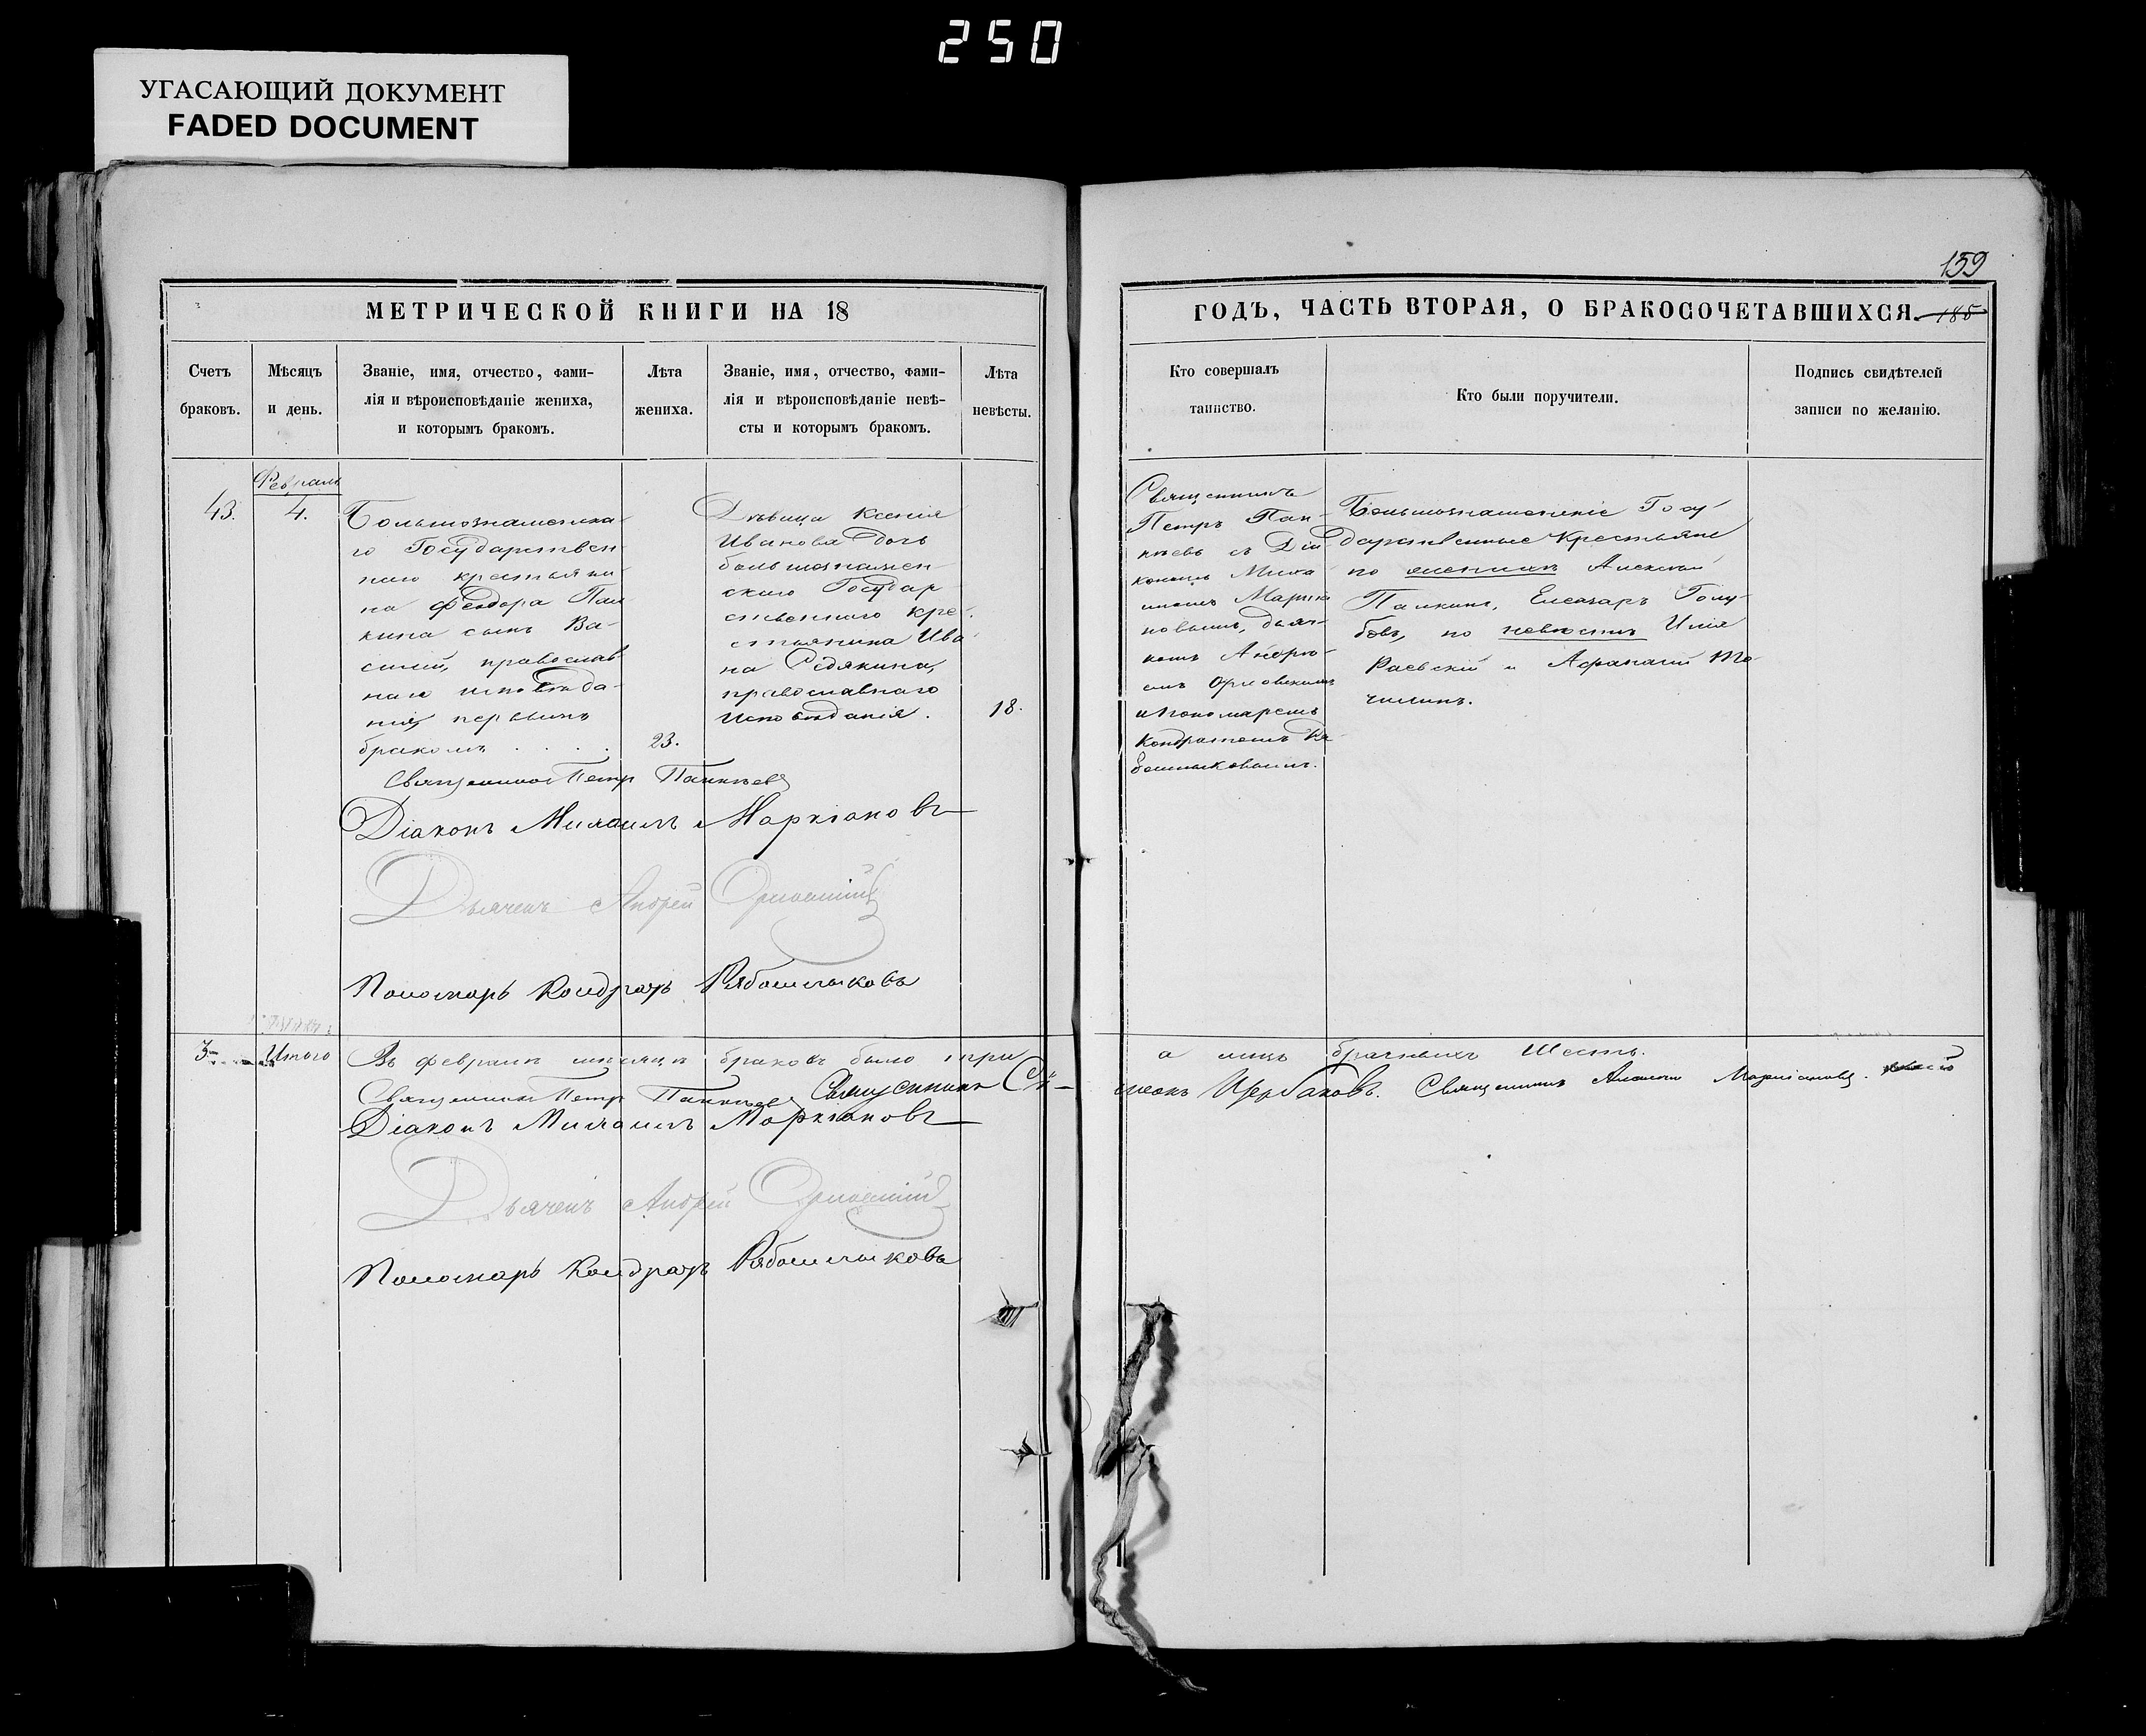 250
УГАСАЮЩИЙ ДОКУМЕНТ
FADED DOCUMENT
159
МЕТРИЧЕСКОЙ КНИГИ НА 18
ГОДЪ, ЧАСТЬ ВТОРАЯ, О БРАКОСОЧЕТАВШИХСЯ. 185
Счетъ
браковъ.
Мѣсяцъ
и день.
Званіе, имя, отчество, фами-
лія и вѣроисповѣданіе жениха,
и которымъ бракомъ.
Лѣта
жениха.
Званіе, имя, отчество, фами-
лія и вѣроисповѣданіе невѣ-
сты и которымъ бракомъ.
Лѣта
невѣсты.
Кто совершалъ
таинство.
Кто были поручители.
Подпись свидѣтелей
записи по желанію.
Февраль
43.
4.
Большознаменска-
го Государствен-
наго крестьяни-
на Феодора Пал
кина сынъ Ва-
силій, православ
наго исповѣда-
нія, первымъ
бракомъ . . . .
23.
Дѣвица Ксенія
Иванова дочь
большознамен
скаго Государ
ственнаго кре-
стьянина Ива
на Рѣдякина,
православнаго
исповѣданія.
18.
Священникъ
Петръ Пан-
кѣевъ съ Діа
кономъ Миха
иломъ Маркіа
новымъ, дьяч-
комъ Андре-
емъ Орловскимъ
и Пономаремъ
Кондратомъ Ря
башлыковымъ.
Большознаменскіе Госу
дарственные Крестьяне
по женихѣ Алексѣй
Палкинъ, Елеазаръ Голу-
бовъ, по невѣстѣ Илія
Раевскій и Афанасій То-
чилинъ.
Священникъ Петръ Панкѣевъ
Діаконъ Михаилъ Маркіановъ
Дьячекъ Андрей Орловскій
Пономарь Кондратъ Рябошлыковъ
3
Итого
Въ февралѣ мѣсяцѣ браковъ было три
а лицъ брачныхъ шесть.
Священникъ Петръ Панкѣевъ Священникъ Сѵ-
меонъ Щербаковъ. Священникъ Алексѣй Маркіановъ.
Діаконъ Михаилъ Маркіановъ
Дьячекъ Андрей Орловскій
Пономарь Кондратъ Рябошлыковъ